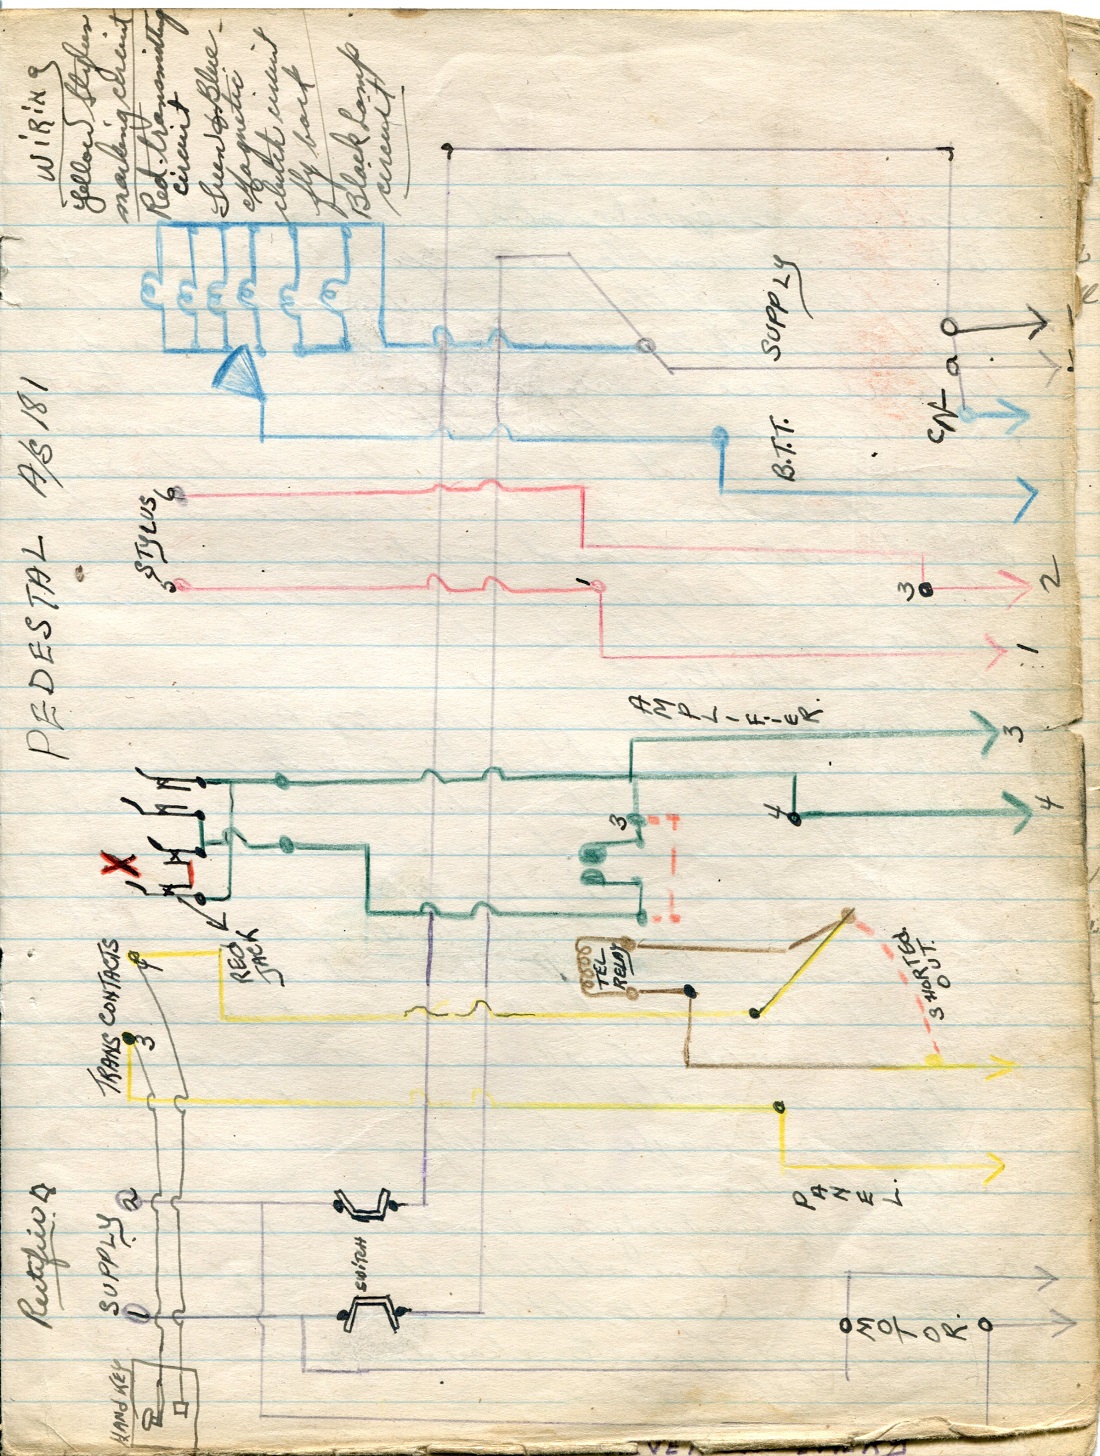 PEDESTAL A/S 181
WIRING
Yellow Stylus
marking circuit
Red transmitting
circuit
Green & Blue -
Magnetic
clutch circuit
fly back
Black Lamp
circuit
Rectified
HAND KEY
SUPPLY
1 2
TRANS CONTACTS
3 4
X
REC
JACK
STYLUS
5 6
SWITCH
TEL
RELAY
3
1
AMPLIFIER.
SUPPLY
B.T.T.
4
3
SHORTED
OUT.
PANEL.
MOTOR.
4 3 1 2